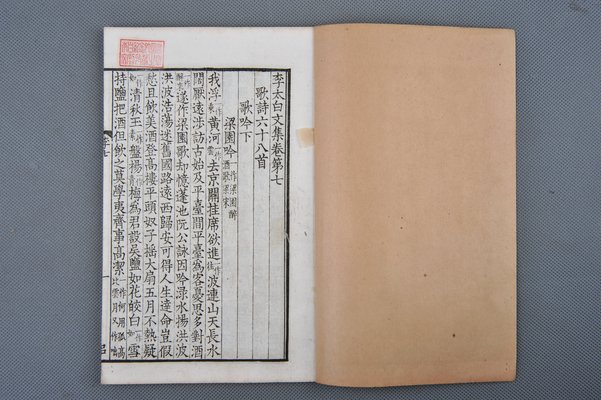 李太白文集卷第七
歌詩六十八首
歌吟下
梁園吟 一作梁園醉酒歌 梁宋
我浮黃河 去京闕挂席欲進 波連山天長水
闊厭遠涉訪古始及平臺間平臺為客憂思多對酒
遂作梁園歌却憶蓬池阮公詠因吟淥水揚洪波
洪波浩蕩迷舊國路遠西歸安可得人生達命豈假
愁且飲美酒登高樓平頭奴子搖大扇五月不熱疑
清秋玉 盤楊梅為君設吳鹽如花皎白 雪
持鹽把酒但飲之莫學夷齊事高潔
李七
一
呂